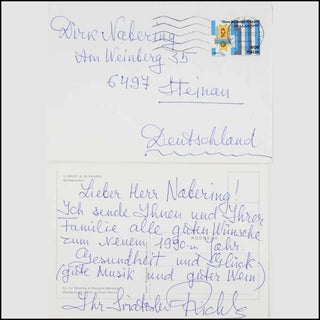 Dirk Nabering
Am Weinberg 35
6497 Steinau
Deutschland
Lieber Herr Nabering!
Ich sende Ihnen und Ihrer
Familie alle guten Wünsche
zum Neuem 1990-n Jahr
Gesundheit und Glück
(gute Musik und guter Wein)
Ihr Swiatoslav Richter